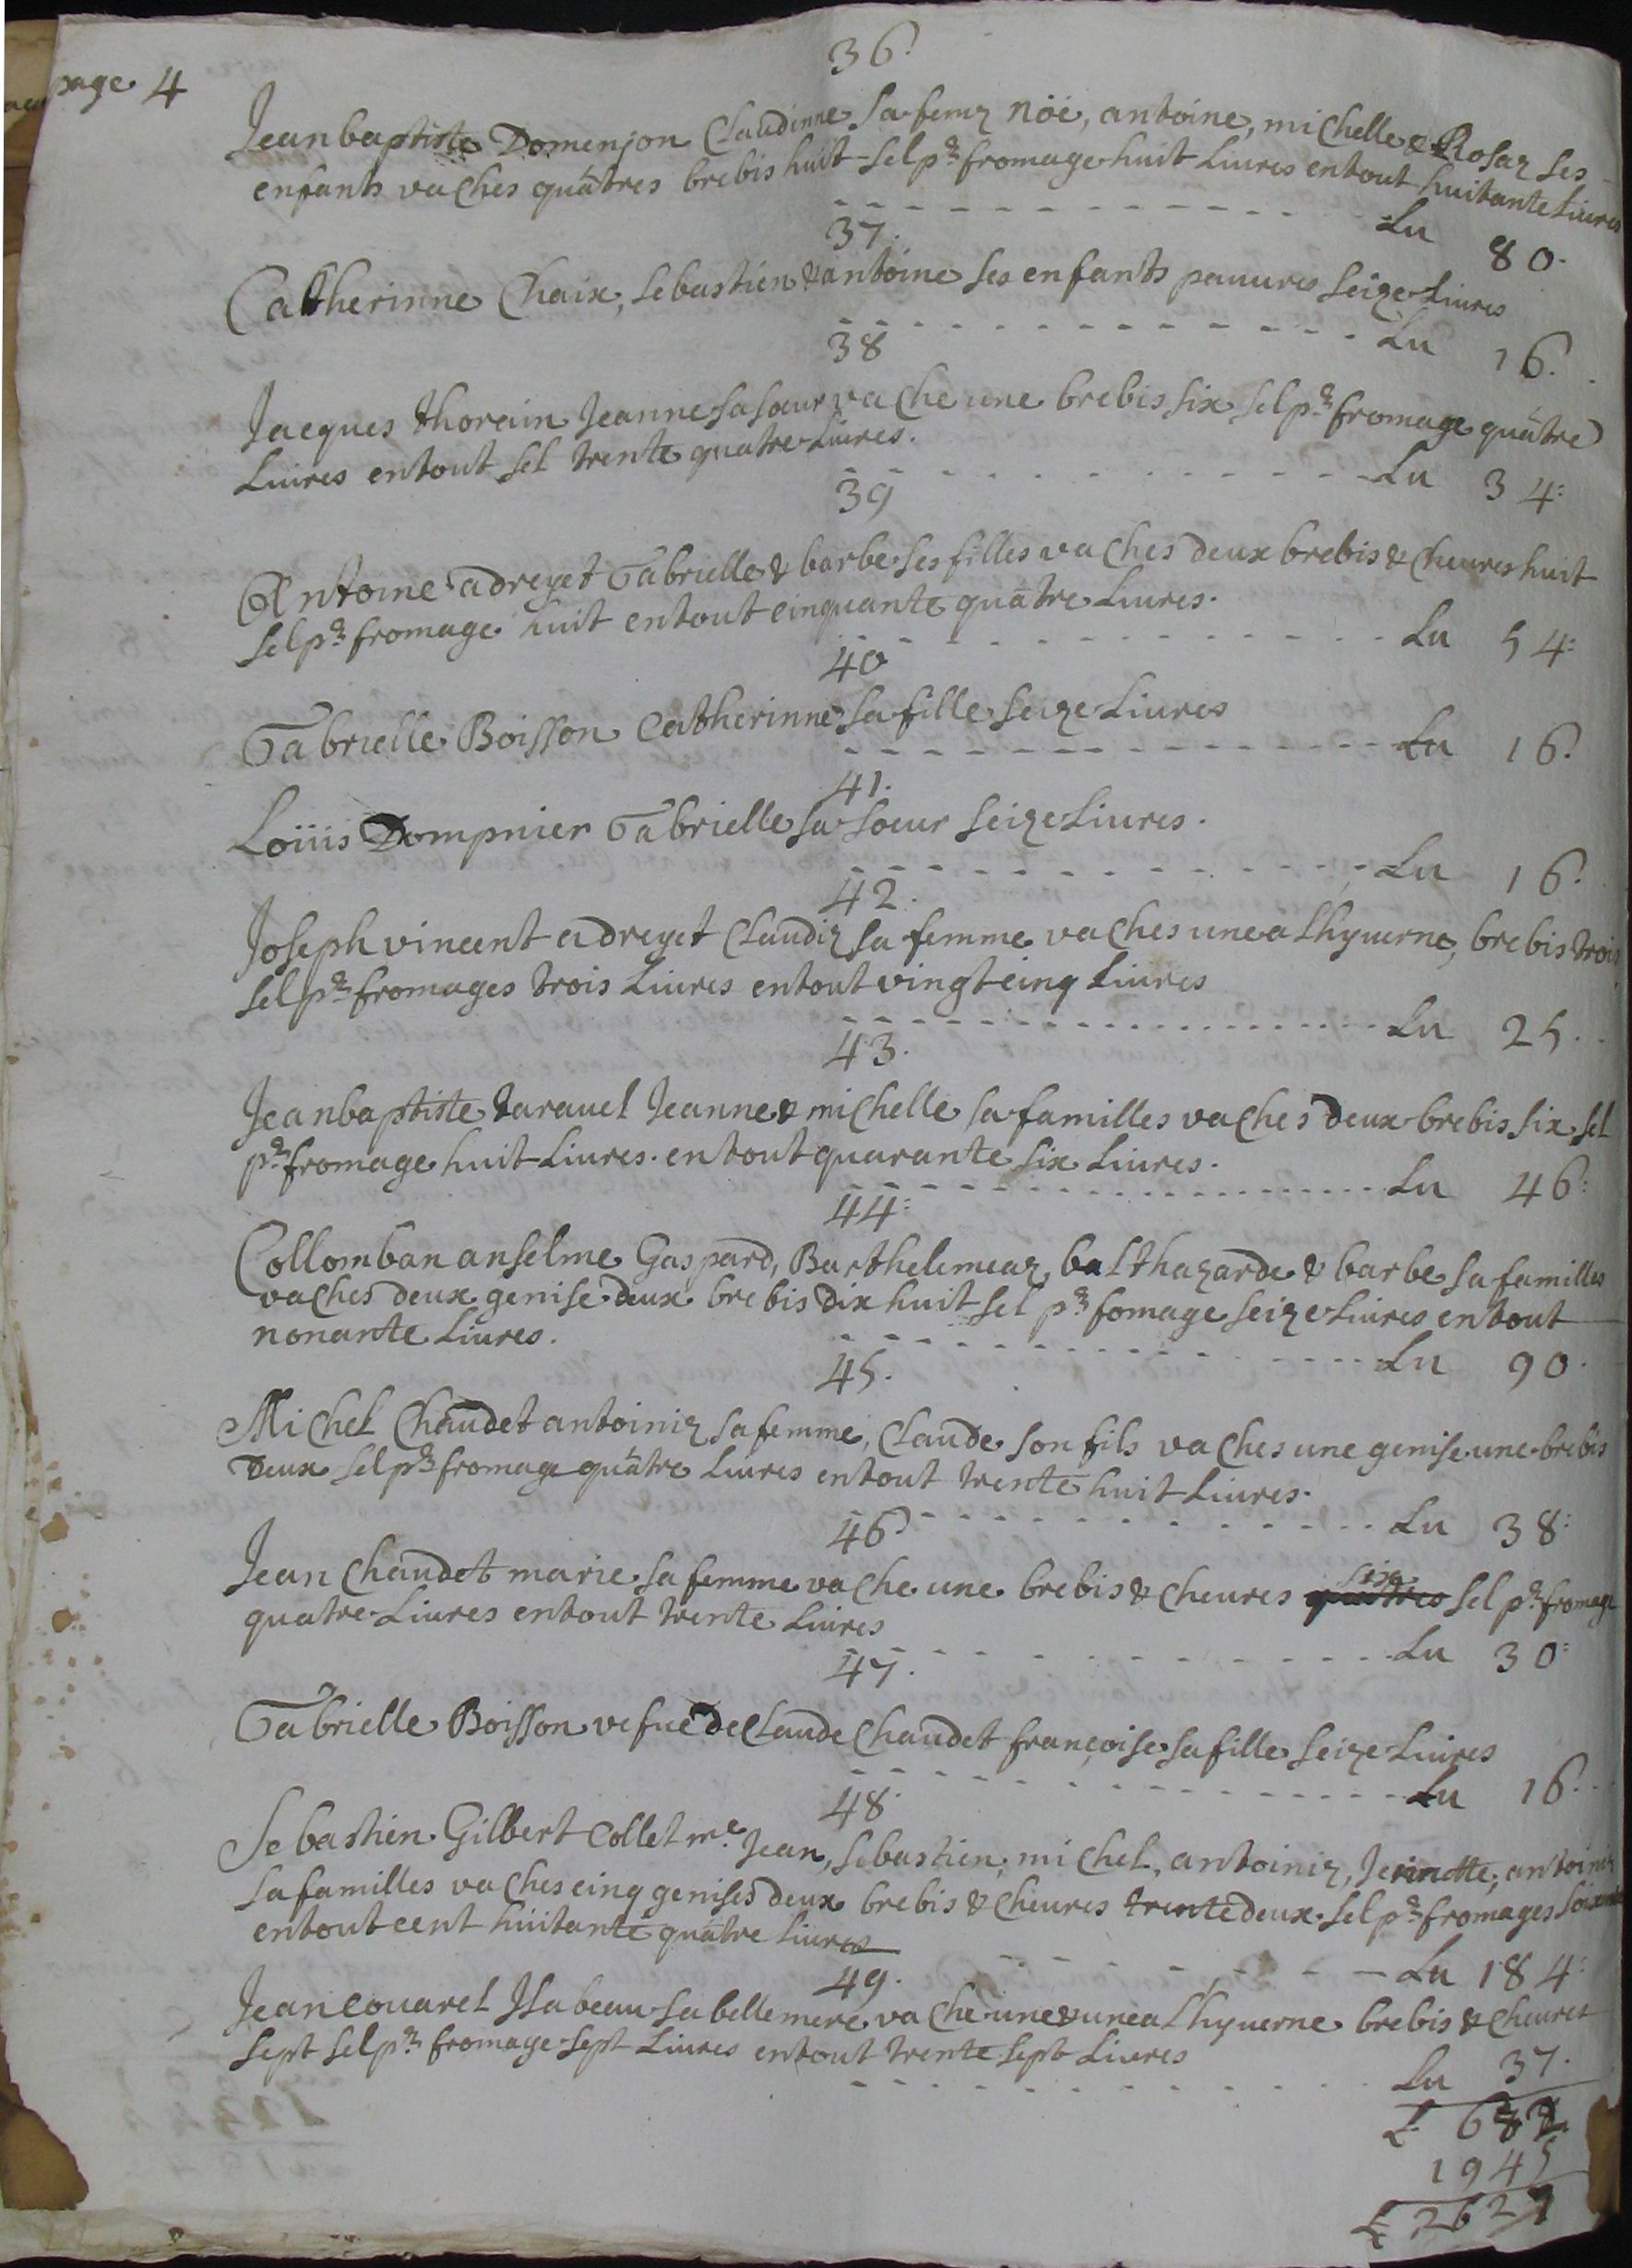 36.
page 4
Jeanbaptiste Domenjon Claudinne sa femz nöe, antoine, michelle & Rosaz ses
enfants vaches quātres brebis huit sel pr fromage huit Liures entout huitante Liures
Lu 80.
37.
Catherinne Chaix, sebastien & antoine ses enfants pauures seize Liures
Lu 16.
38
Jacques thorain Jeanne sa sœur vache une brebis six sel pr fromage quātre
Liures entout sel trente quatre Liures.
Lu 34:
39
Antoine adreyet Gabrielle & barbe ses filles vaches deux brebis & cheures huit
sel pr fromage huit entout cinquante quātre Liures.
Lu 54:
40
Gabrielle Boisson Catherinne sa fille seize Liures
Lu 16.
41.
Loüis Dompnier Gabrielle sa soeur seize Liures.
Lu 16.
42.
Joseph vincent adreyet Claudiz sa femme vaches une a Lhyuerne, brebis trois
sel pr fromages trois Liures entout vingt cinq Liures
Lu 25.
43.
Jeanbaptiste tarauel Jeanne & michelle sa familles vaches deux brebis six sel
pr fromage huit Liures. entout quarante six Liures.
Lu 46:
44:
Collomban anselme Gaspard, Barthelemeaz, balthazarde & barbe sa familles
vaches deux genise deux brebis dix huit sel pr fomage seize Liures entout
nonante Liures.
Lu 90.
45.
Michel Chaudet antoiniz sa femme, Claude son fils vaches une genise une brebis
Deux sel pr fromage quātre Liures entout trente huit Liures.
Lu 38:
46.
Jean Chaudet marie sa femme vache une brebis & cheures quattres six sel pr fromage
quatre Liures entout trente Liures
Lu 30:
47.
Gabrielle Boisson vefue de Claude Chaudet françoise sa fille seize Liures
Lu 16.
48.
Sebastien Gilbert Collet me. Jean, sebastien, michel, antoiniz, Jerinette, antoiniz
sa familles vaches cinq genises deux brebis & cheures trente deux. sel pr fromages soixante
entout cent huitante quātre Liures
Lu 184:
49.
Jean couarel Isabeau sa belle mere vache une & une a Lhyuerne brebis & cheures
sept sel pr fromage sept Liures entout trente sept Liures
Lu 37.
L 682
1945
L 2627